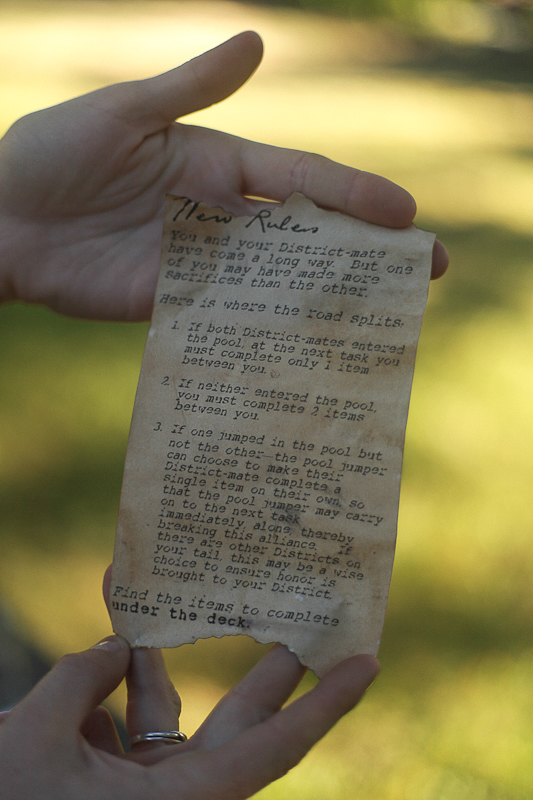 New Rules
You and your District-mate
have come a long way. But one
of you may have made more
sacrifices than the other.
Here is where the road splits:
1. If both District-mates entered
the pool, at the next task you
must complete only 1 item
between you.
2. If neither entered the pool,
you must complete 2 items
between you.
3. If one jumped in the pool but
not the other—the pool jumper
can choose to make their
District-mate complete a
single item on their own, so
that the pool jumper may carry
on to the next task
immediately, alone, thereby
breaking this alliance. If
there are other Districts on
your tail, this may be a wise
choice to ensure honor is
brought to your District.
Find the items to complete
under the deck.